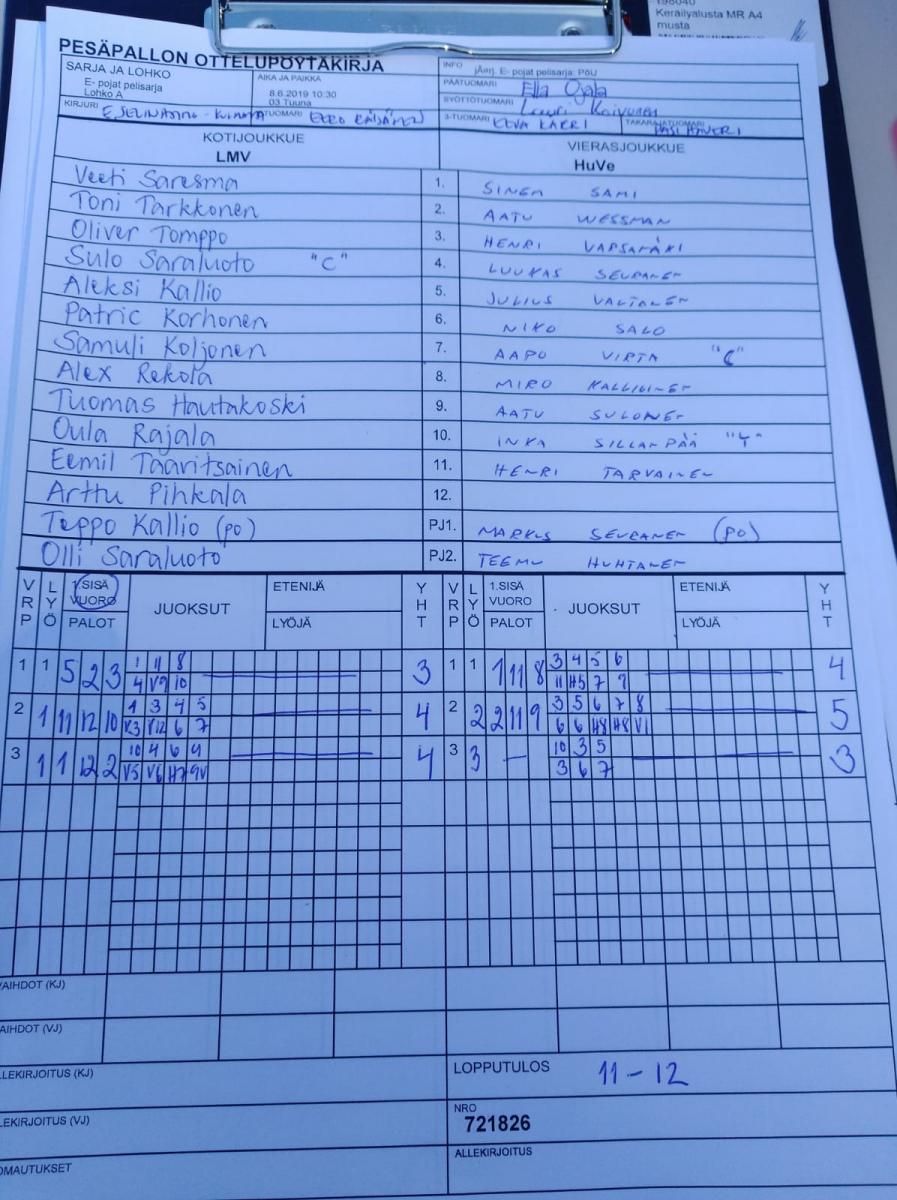 198040
Keräilyalusta MR A4
musta
PESÄPALLON OTTELUPÖYTÄKIRJA
SARJA JA LOHKO
E- pojat pelisarja
Lohko A
AIKA JA PAIKKA
8.6.2019 10:30
03 Tuuna
INFO jÄrj. E- pojat pelisarja: PöU
PÄÄTUOMARI Ella Ojala
SYÖTTÖTUOMARI Lauri Koivunen
KIRJURI
TUOMARI EERO RÄISÄNEN
3-TUOMARI EEVA KARRI
TAKARAJATUOMARI
KOTIJOUKKUE
LMV
VIERASJOUKKUE
HuVe
Veeti Saresma 1. SINEM SAMI
Toni Tarkkonen 2. AATU WESSMAN
Oliver Tomppo 3. HENRI VAPSAMÄKI
Sulo Saraluoto "C" 4. LUUKAS SEURANEN
Aleksi Kallio 5. JULIUS VALTANEN
Patric Korhonen 6. NIKO SALO
Samuli Koljonen 7. AAPO VIRTA "C"
Alex Rekola 8. MIRO KALLILINEN
Tuomas Hautakoski 9. AATU SULONEN
Oula Rajala 10. INKA SILLANPÄÄ "T"
Eemil Taaritsainen 11. HENRI TARVAINEN
Arttu Pihkala 12.
Teppo Kallio (po) PJ1. MARKUS SEURANEN (po)
Olli Saraluoto PJ2. TEEMU HUHTANEN
VRP LYÖ 1.SISÄ VUORO PALOT JUOKSUT ETENIJÄ LYÖJÄ YHT VRP LYÖ 1.SISÄ VUORO PALOT JUOKSUT ETENIJÄ LYÖJÄ YHT
1 1 5 2 3 1 11 8 3 1 1 1 11 8 3 4 5 6 4
4 V9 10 11 H5 7 9
2 1 11 12 10 1 3 4 5 4 2 2 2 11 9 3 5 6 7 8 5
K3 V12 6 7 6 6 H8 H8 V1
3 1 1 12 2 10 4 6 9 4 3 3 – 10 3 5 3
V5 V6 H7 9V 3 6 7
VAIHDOT (KJ)
VAIHDOT (VJ)
LLEKIRJOITUS (KJ)
LOPPUTULOS 11 – 12
LEKIRJOITUS (VJ)
NRO
721826
OMAUTUKSET
ALLEKIRJOITUS